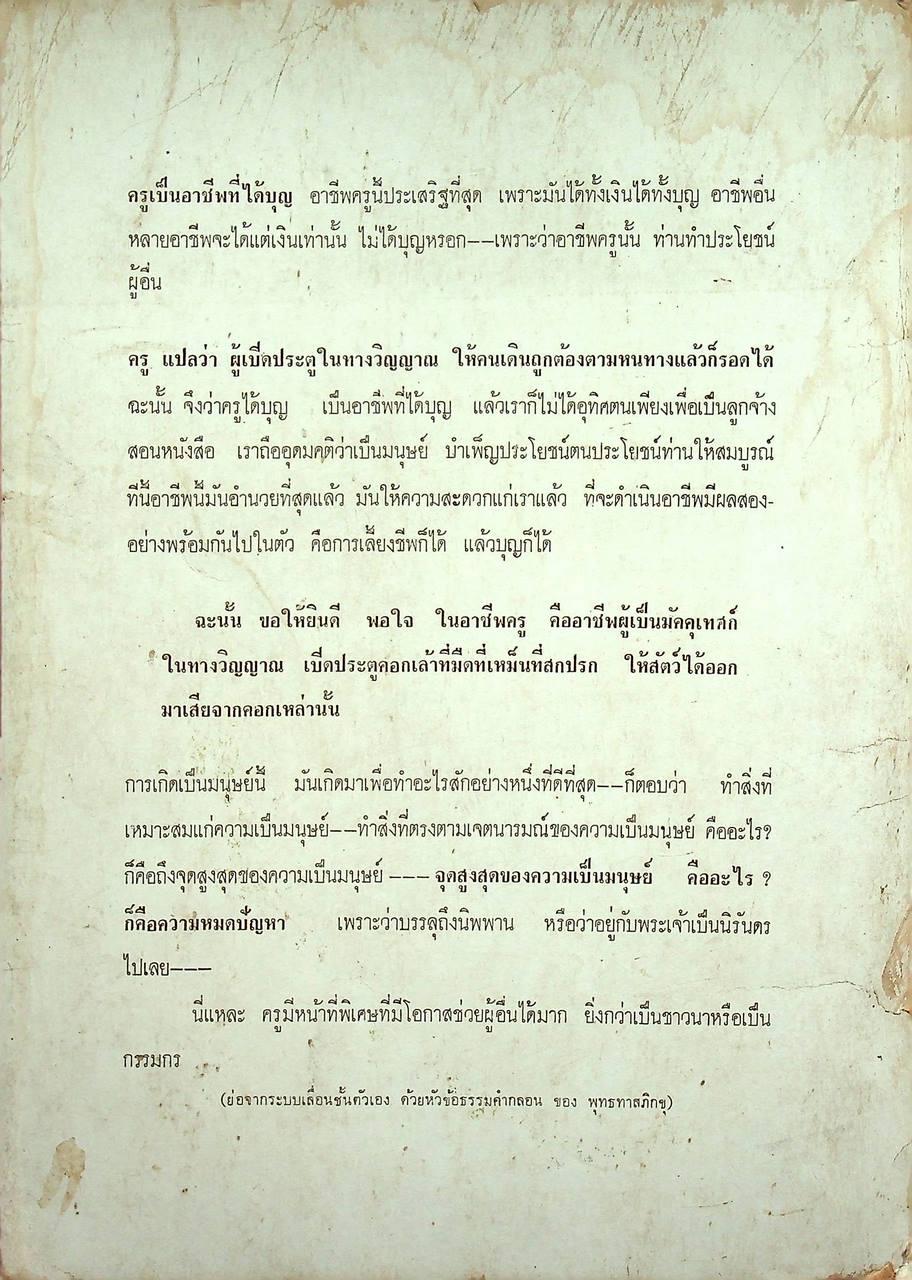 ครูเป็นอาชีพที่ได้บุญ อาชีพครูนี้ประเสริฐที่สุด เพราะมันได้ทั้งเงินได้ทั้งบุญ อาชีพอื่น
หลายอาชีพจะได้แต่เงินเท่านั้น ไม่ได้บุญหรอก--เพราะว่าอาชีพครูนั้น ท่านทำประโยชน์
ผู้อื่น
ครู แปลว่า ผู้เปิดประตูในทางวิญญาณ ให้คนเดินถูกต้องตามหนทางแล้วก็รอดได้
ฉะนั้น จึงว่าครูได้บุญ เป็นอาชีพที่ได้บุญ แล้วเราก็ไม่ได้อุทิศตนเพียงเพื่อเป็นลูกจ้าง
สอนหนังสือ เราถืออุดมคติว่าเป็นมนุษย์ บำเพ็ญประโยชน์ตนประโยชน์ท่านให้สมบูรณ์
ทีนี้อาชีพนี้มันอำนวยที่สุดแล้ว มันให้ความสะดวกแก่เราแล้ว ที่จะดำเนินอาชีพมีผลสอง-
อย่างพร้อมกันไปในตัว คือการเลี้ยงชีพก็ได้ แล้วบุญก็ได้
ฉะนั้น ขอให้ยินดี พอใจ ในอาชีพครู คืออาชีพผู้เป็นมัคคุเทสก์
ในทางวิญญาณ เปิดประตูคอกเล้าที่มืดที่เหม็นที่สกปรก ให้สัตว์ได้ออก
มาเสียจากคอกเหล่านั้น
การเกิดเป็นมนุษย์นี้ มันเกิดมาเพื่อทำอะไรสักอย่างหนึ่งที่ดีที่สุด--ก็ตอบว่า ทำสิ่งที่
เหมาะสมแก่ความเป็นมนุษย์--ทำสิ่งที่ตรงตามเจตนารมณ์ของความเป็นมนุษย์ คืออะไร?
ก็คือถึงจุดสูงสุดของความเป็นมนุษย์ --- จุดสูงสุดของความเป็นมนุษย์ คืออะไร ?
ก็คือความหมดปัญหา เพราะว่าบรรลุถึงนิพพาน หรือว่าอยู่กับพระเจ้าเป็นนิรันดร
ไปเลย---
นี่แหละ ครูมีหน้าที่พิเศษที่มีโอกาสช่วยผู้อื่นได้มาก ยิ่งกว่าเป็นชาวนาหรือเป็น
กรรมกร
(ย่อจากระบบเลื่อนชั้นตัวเอง ด้วยหัวข้อธรรมคำกลอน ของ พุทธทาสภิกขุ)